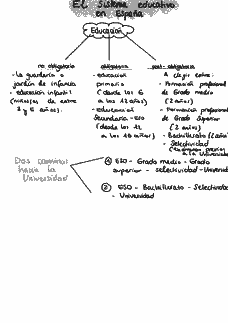 El sistema educativo
en España
Educación
no obligatoria
- La guardería o
jardín de infancia
- educación infantil
(niños/as de entre
3 y 5 años).
obligatoria
- educación
primaria
(desde los 6
a los 12 años)
- educación
Secundaria - ESO
(desde los 12
a los 16 años)
post-obligatoria
A elegir entre:
- Formación profesional
de Grado medio
(2 años)
- Formación profesional
de Grado Superior
(2 años)
- Bachillerato (2 años)
- Selectividad
a la Universidad
Dos caminos
hacia la
Universidad
① ESO - Grado medio - Grado
superior - selectividad - Universidad
② ESO - Bachillerato - Selectividad
- Universidad